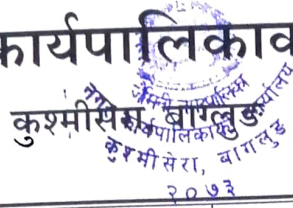 कार्यपालिकाव
कुश्मीसेरा, बाग्लुङ
जैमिनी नगरपालिका
नगर कार्यपालिकाको कार्यालय
कुश्मीसेरा, बागलुङ
२०७३